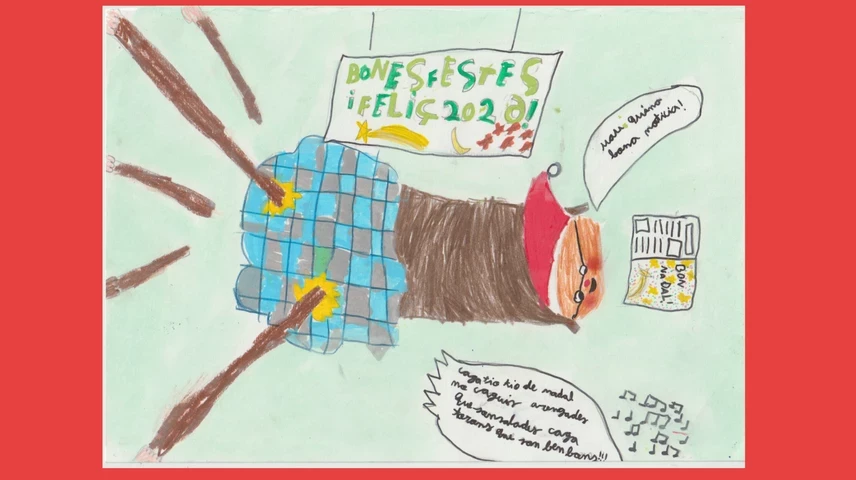 BONES FESTES
i FELIÇ 2020!
uau quina
bona notícia!
BON
NADAL!
caga tio tio de nadal
no caguis arengades
que son salades caga
torrons que son ben bons!!!